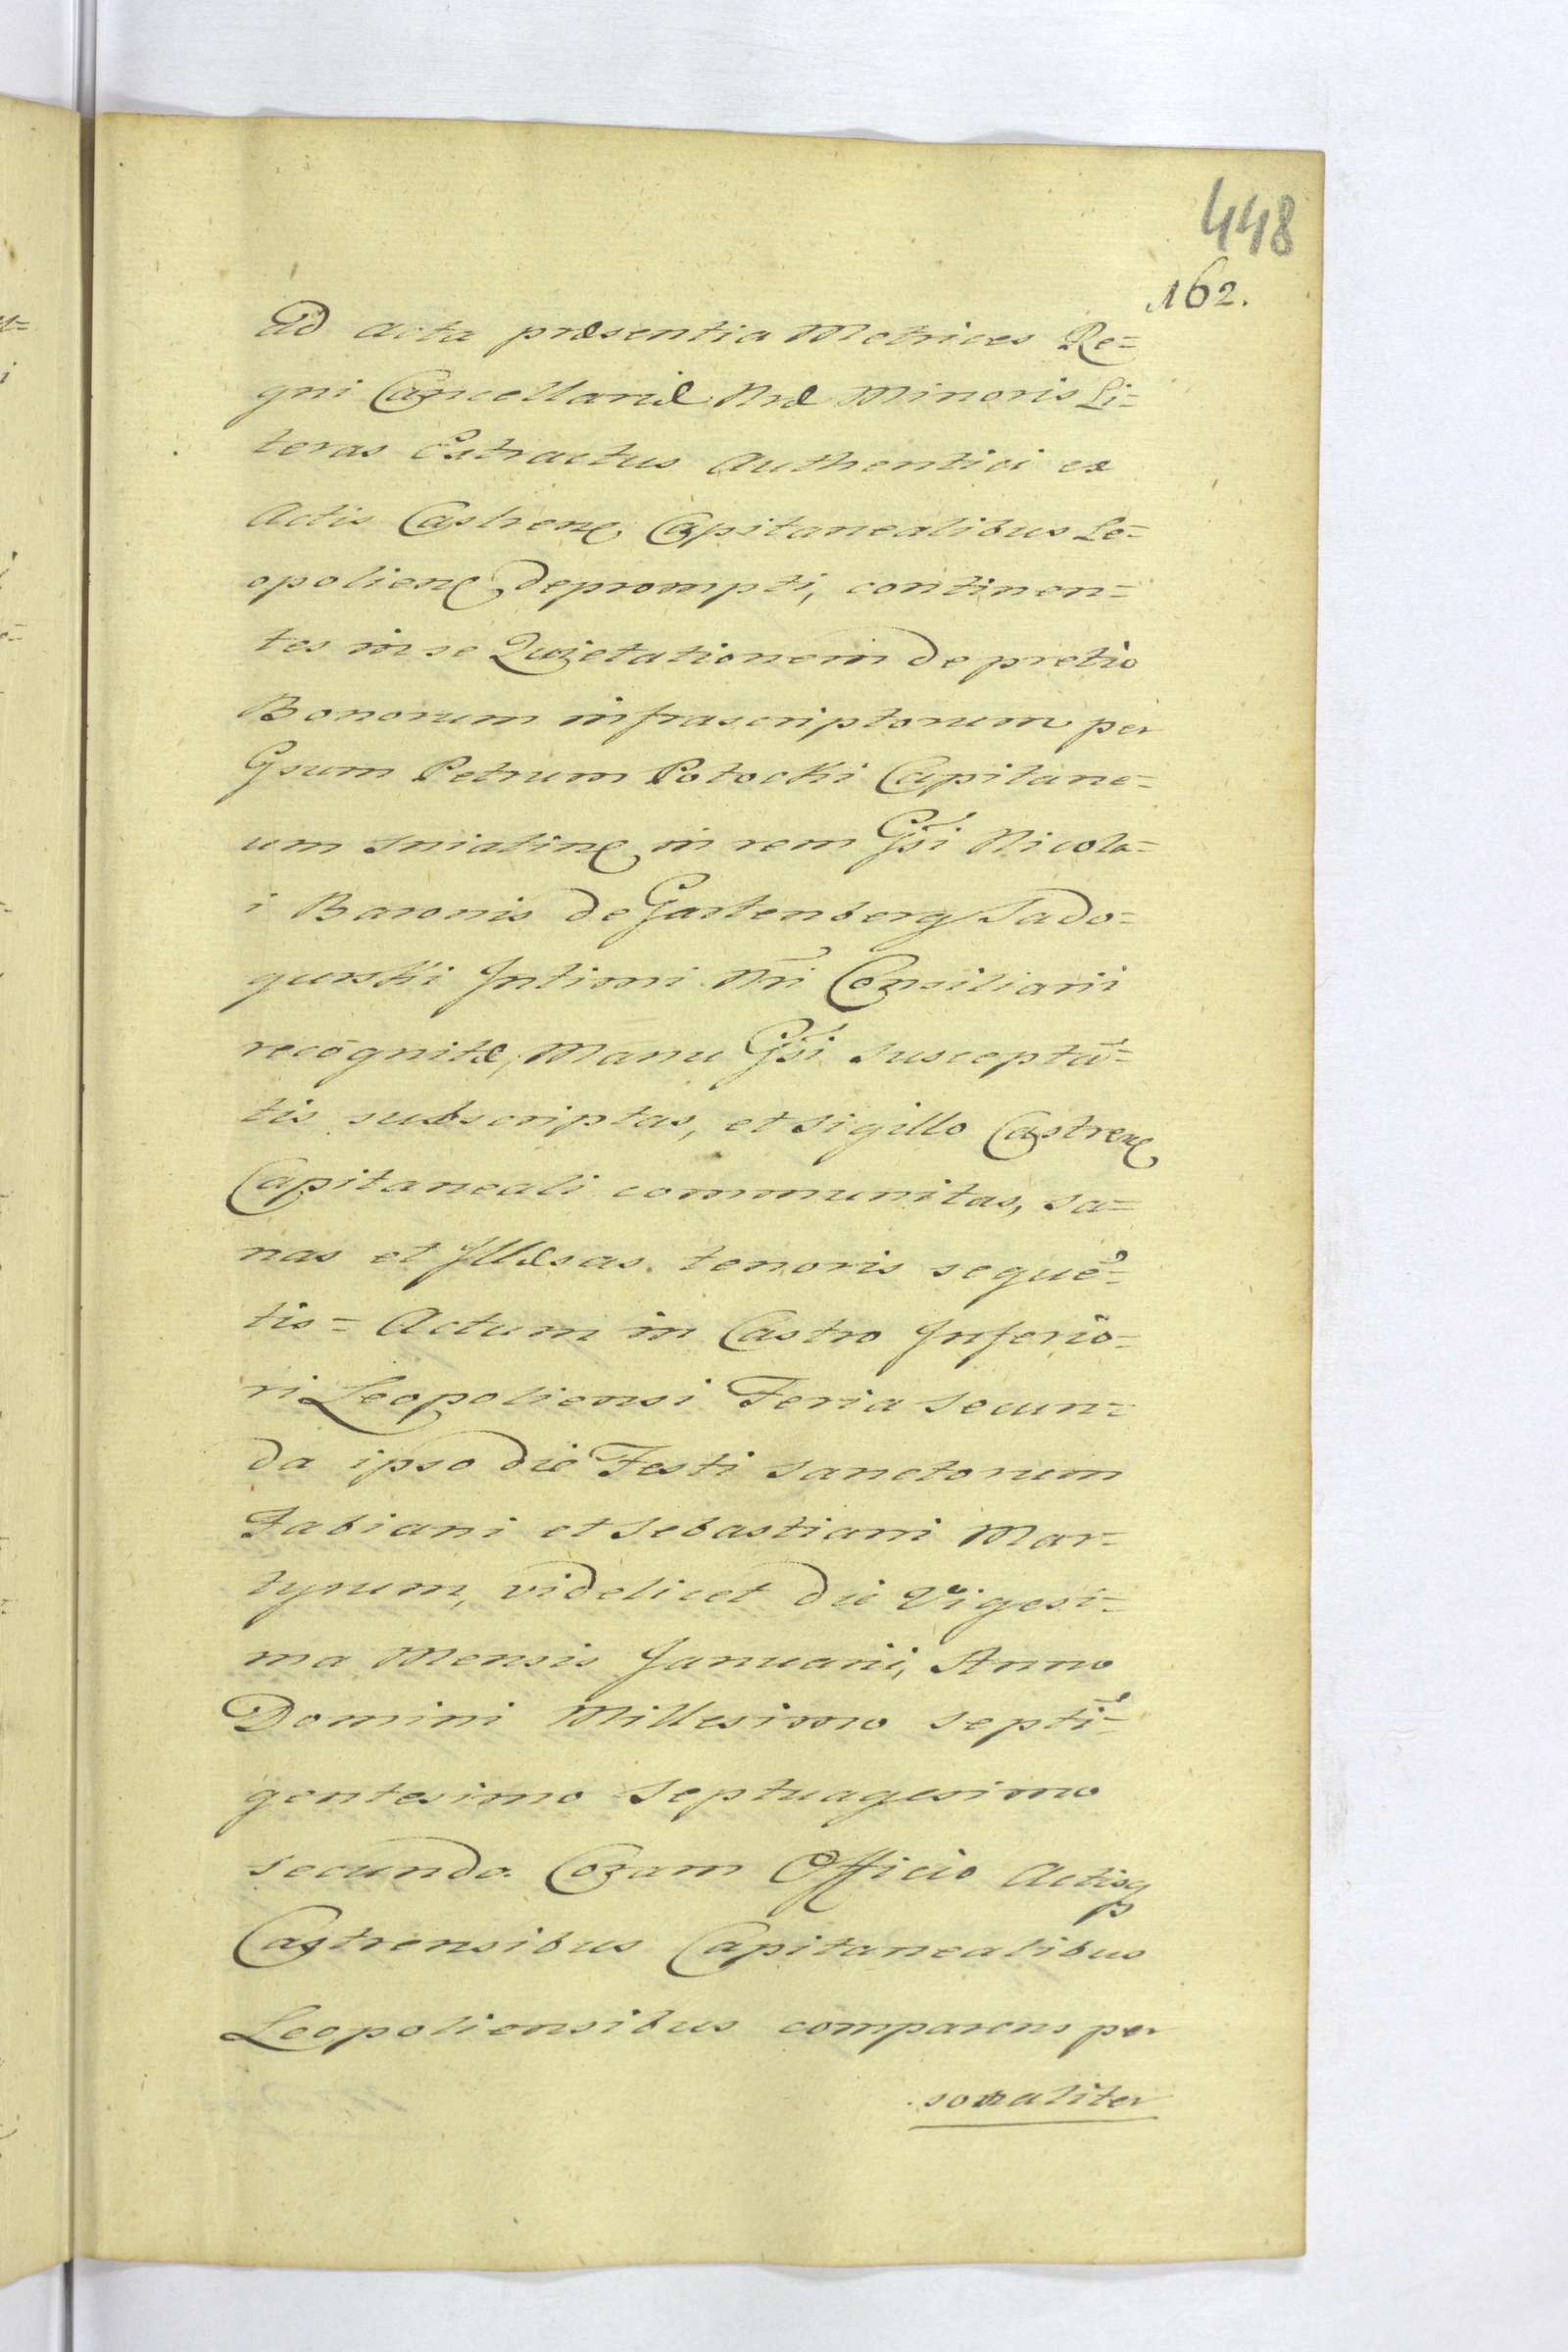 448
162.
Ad acta præsentia Metrices Re=
gni Cancellariæ Nræ Minoris Li=
teras Extractus Authentici ex
Actis Castren Capitanealibus Le=
opolien deprompti, continen=
tes in se Quietationem de pretio
Bonorum infrascriptorum per
Gsum Petrum Potocki Capitane=
um Sniatin in rem Gsi Nicola=
i Baronis de Gartenberg Sado=
gurski Intimi Nri Consiliarii
recognitæ, Manu Gsi Suscepta=
tis subscriptas, et Sigillo Castren
Capitaneali communitas, sa=
nas et Illæsas tenoris seque=
tis = Actum in Castro Inferio=
ri Leopoliensi Feria Secun=
da ipso die Festi Sanctorum
Fabiani et Sebastiani Mar=
tyrum, videlicet die Vigesi=
ma Mensis Januarii, Anno
Domini Millesimo septi=
gentesimo Septuagesimo
secundo. Coram Officio Actisq
Castrensibus Capitanealibus
Leopoliensibus comparens per
sonaliter